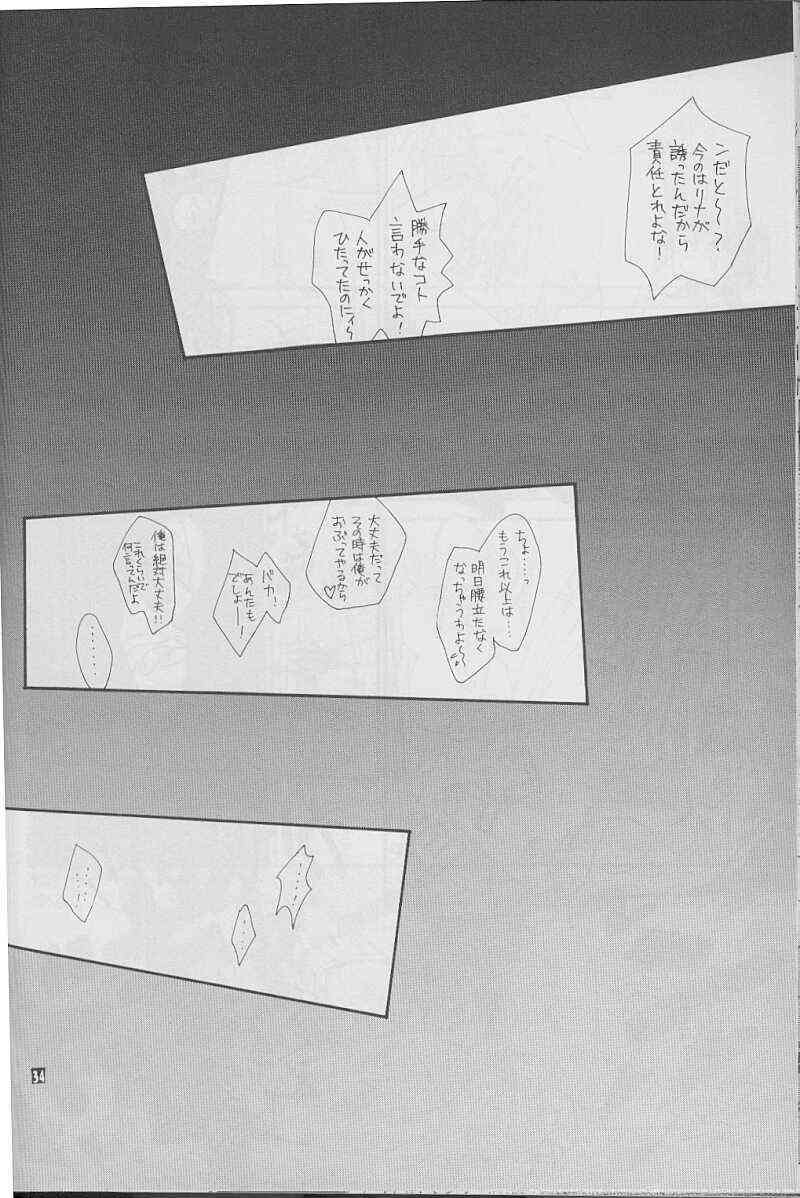 ンだと〜?
今のはリナが
誘ったんだから
責任とれよな!
勝手なコト
言わないでよ!
人がせっかく
ひたってたのにィ〜
ちょ……っ
もうこれ以上は…
明日腰立たなく
なっちゃうわよ〜
大丈夫だって
その時は俺が
おぶってやるから♡
バカ!
あんたも
でしょー!
俺は絶対大丈夫!!
これくらいで
何言ってんだよ
……
…!
…
…!
34